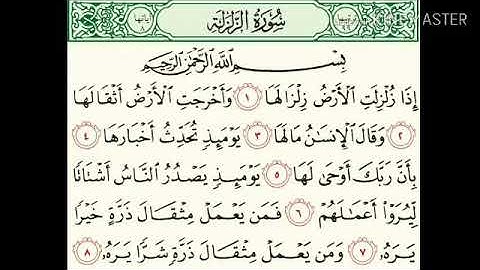 سُورَةُ الزَّلْزَلَةِ
آياتها ٨
MASTER
بِسْمِ اللَّهِ الرَّحْمَٰنِ الرَّحِيمِ
إِذَا زُلْزِلَتِ الْأَرْضُ زِلْزَالَهَا ١ وَأَخْرَجَتِ الْأَرْضُ أَثْقَالَهَا
٢ وَقَالَ الْإِنسَانُ مَا لَهَا ٣ يَوْمَئِذٍ تُحَدِّثُ أَخْبَارَهَا ٤
بِأَنَّ رَبَّكَ أَوْحَىٰ لَهَا ٥ يَوْمَئِذٍ يَصْدُرُ النَّاسُ أَشْتَاتًا
لِّيُرَوْا أَعْمَالَهُمْ ٦ فَمَن يَعْمَلْ مِثْقَالَ ذَرَّةٍ خَيْرًا
يَرَهُ ٧ وَمَن يَعْمَلْ مِثْقَالَ ذَرَّةٍ شَرًّا يَرَهُ ٨